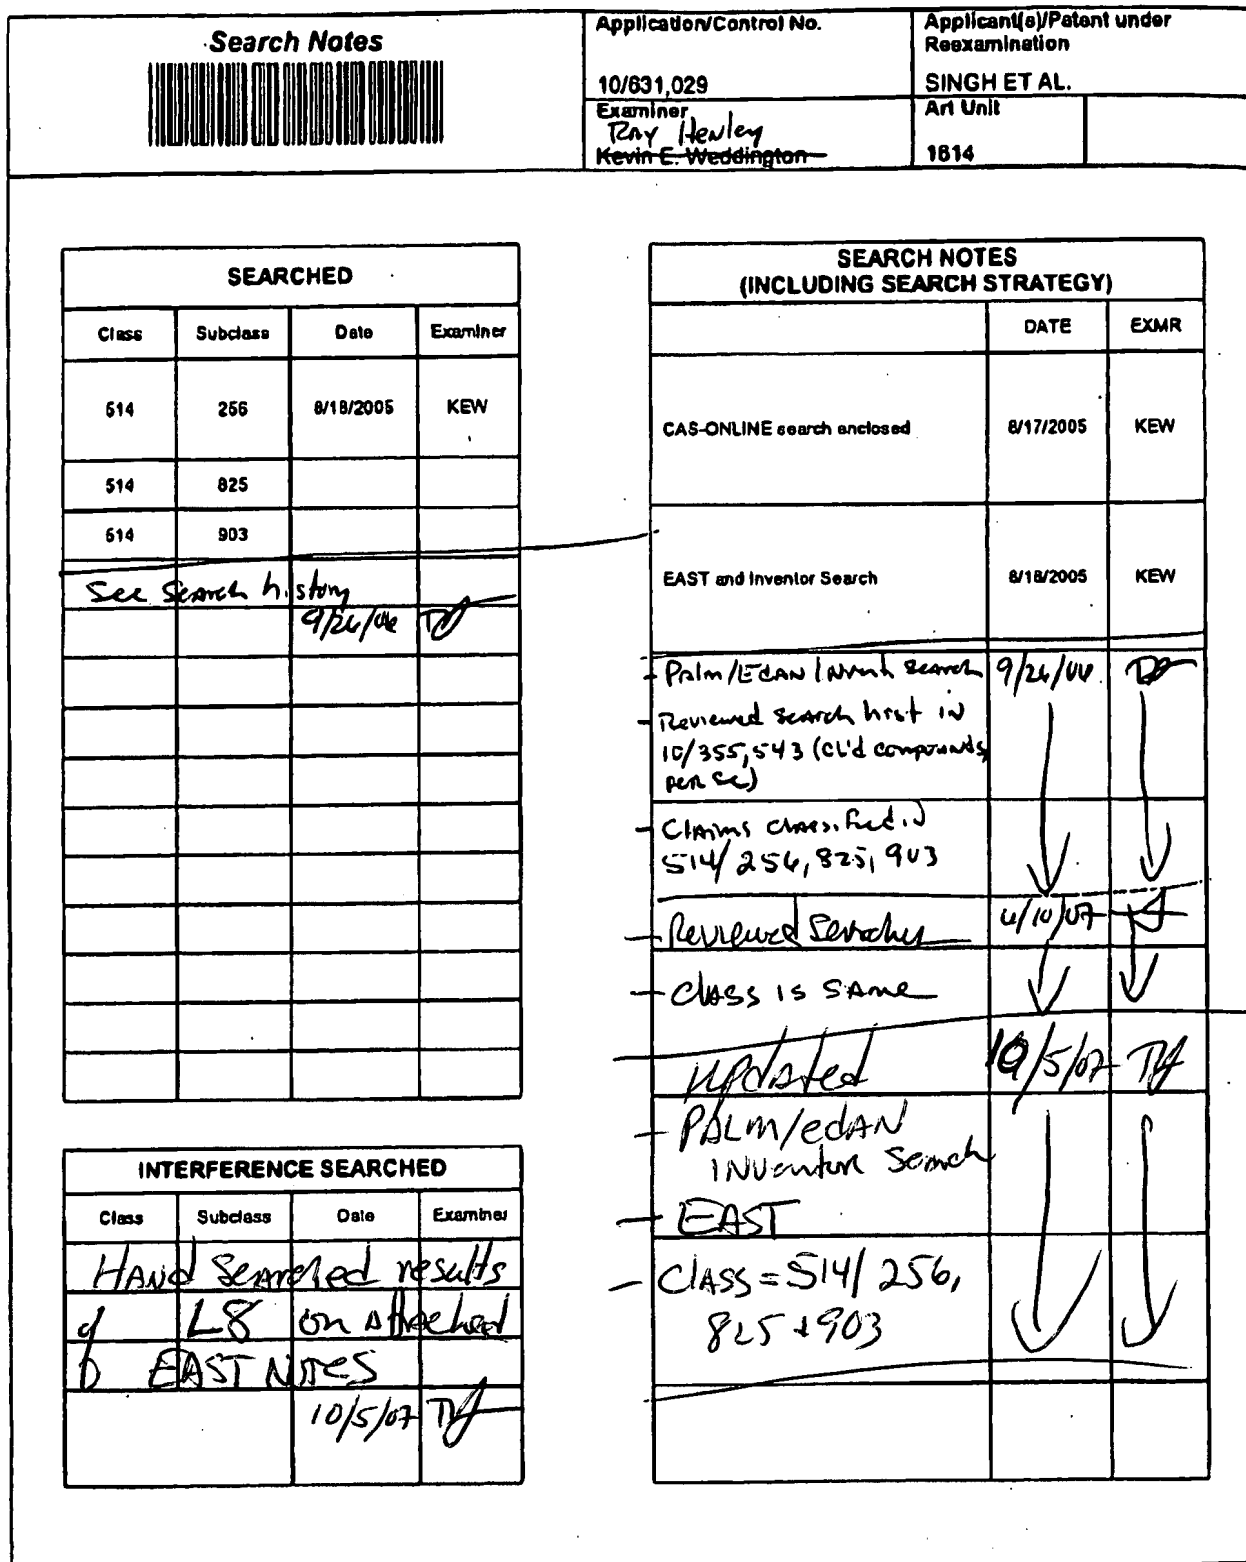 Search Notes
Application/Control No.
10/631,029
Applicant(s)/Patent under
Reexamination
SINGH ET AL.
Examiner
Ray Henley
Kevin E. Weddington
Art Unit
1614
SEARCHED
Class Subclass Date Examiner
514 256 8/18/2005 KEW
514 825
514 903
See Search history
9/26/06
INTERFERENCE SEARCHED
Class Subclass Date Examiner
HAND Searched results
of L8 on Attached
EAST Notes
10/5/07
SEARCH NOTES
(INCLUDING SEARCH STRATEGY)
DATE EXMR
CAS-ONLINE search enclosed 8/17/2005 KEW
EAST and Inventor Search 8/18/2005 KEW
- Palm/EDAN Invent Search 9/26/06
- Reviewed search hist in
10/355,543 (cl'd compounds
per se)
- Claims classified in
514/256, 825, 903
- Reviewed Searches 4/10/07
- Class is same
updated 10/5/07
- PALM/eDAN
INventor Search
- EAST
- Class = 514/256,
825 + 903